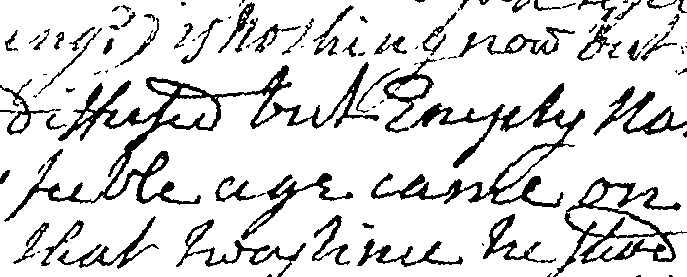 ing?) is Nothing now but
diffused but Empty Na
feeble age came on
that was time he stood